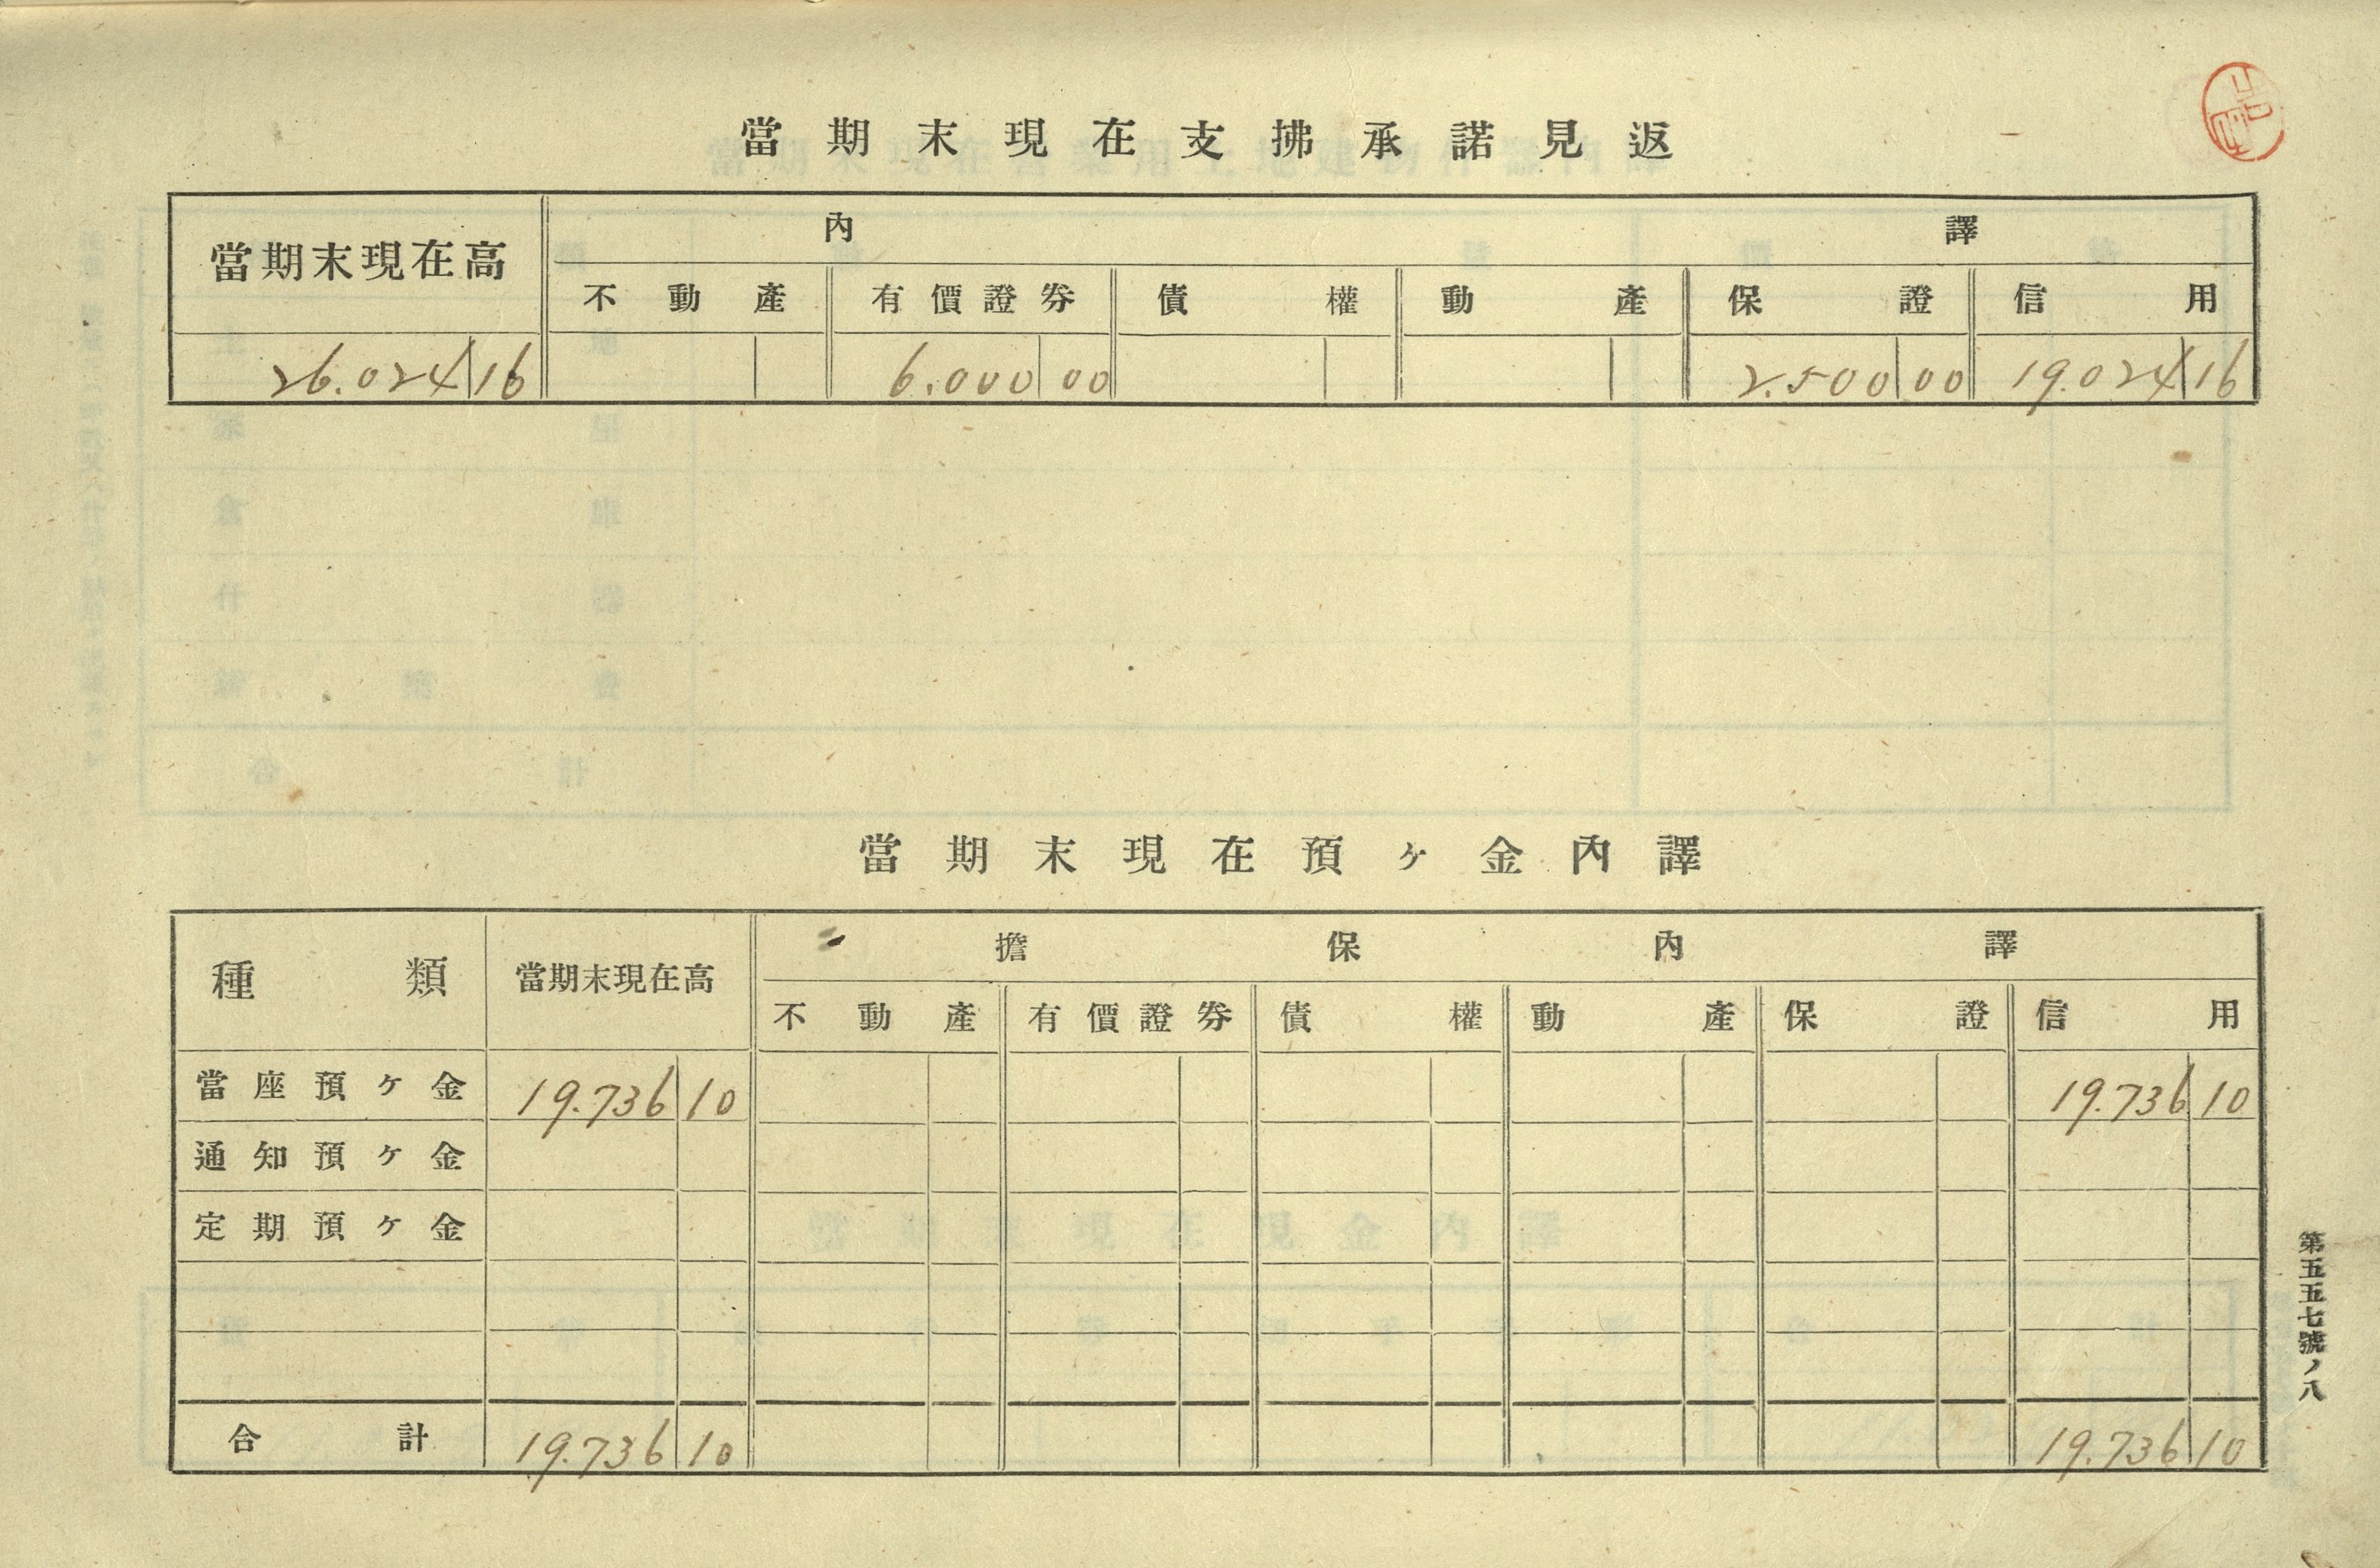 當期末現在支拂承諾見返
當期末現在高 內譯
不動產 有價證券 債權 動產 保證 信用
26.024 16 6.000 00 2.500 00 19.024 16
當期末現在預ヶ金內譯
種類 當期末現在高 擔保內譯
不動產 有價證券 債權 動產 保證 信用
當座預ヶ金 19.736 10 19.736 10
通知預ヶ金
定期預ヶ金
合計 19.736 10 19.736 10
第五五七號ノ八